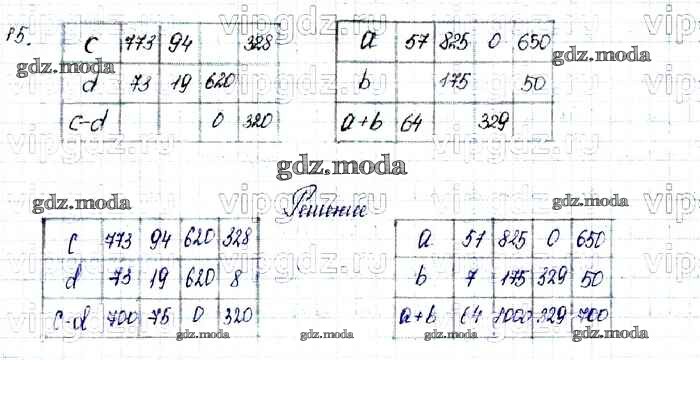 85.
c 773 94 328
d 73 19 620
c-d 0 320
a 57 825 0 650
b 175 50
a+b 64 329
gdz.moda
gdz.moda
gdz.moda
Решение
gdz.moda
gdz.moda
c 773 94 620 328
d 73 19 620 8
c-d 700 75 0 320
a 57 825 0 650
b 7 175 329 50
a+b 64 1000 329 700
gdz.moda
gdz.moda
gdz.moda
gdz.moda
vipgdz.ru
vipgdz.ru
vipgdz.ru
vipgdz.ru